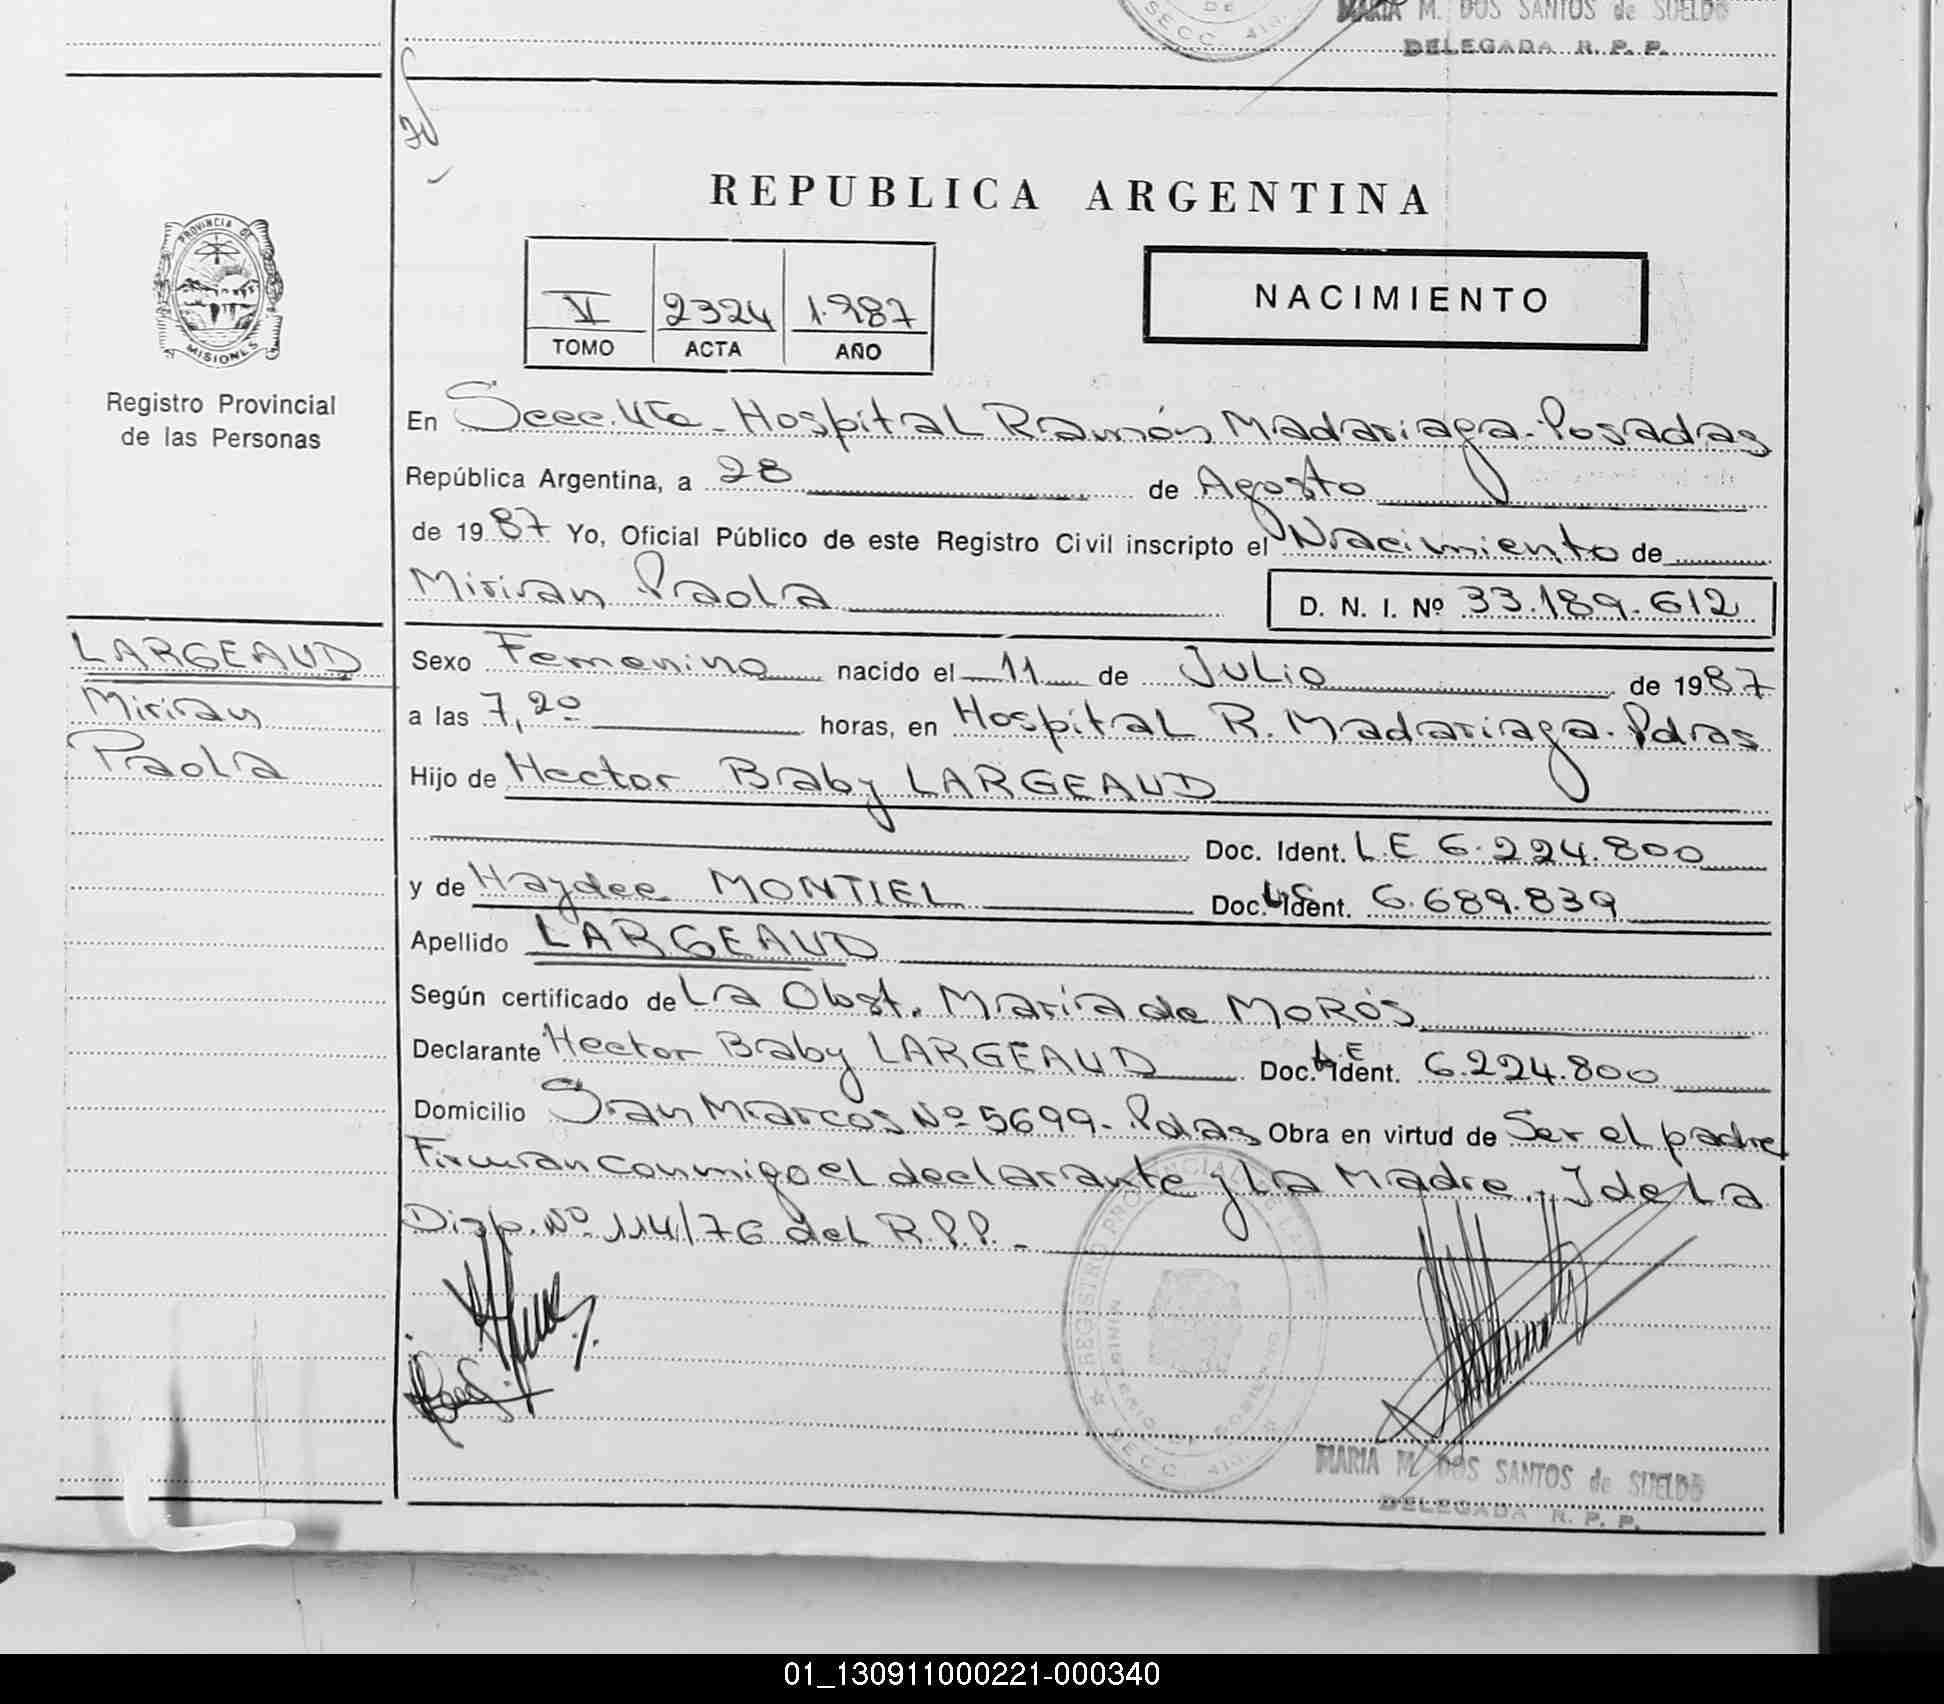 MARIA M. DOS SANTOS de SUELDO
DELEGADA R. P. P.
SECC. 4ta.
REPUBLICA ARGENTINA
PROVINCIA DE
MISIONES
Registro Provincial
de las Personas
V 2324 1.987
TOMO ACTA AÑO
NACIMIENTO
En Secc. 4ta - Hospital Ramón Madariaga - Posadas
República Argentina, a 28 de Agosto
de 1987 Yo, Oficial Público de este Registro Civil inscripto el Nacimiento de
Mirian Paola D. N. I. Nº 33.189.612
LARGEAUD
Mirian
Paola
Sexo Femenino nacido el 11 de Julio de 1987
a las 7,20 horas, en Hospital R. Madariaga. Pdas
Hijo de Hector Baby LARGEAUD
Doc. Ident. L.E 6.224.800
y de Haydee MONTIEL Doc. Ident. LC 6.689.839
Apellido LARGEAUD
Según certificado de La Obst. María de MOROS
Declarante Hector Baby LARGEAUD Doc. Ident. L.E 6.224.800
Domicilio San Marcos Nº 5699 - Pdas Obra en virtud de Ser el padre
Firman conmigo el declarante y La Madre, I de La
Disp. Nº 114/76 del R.P.P. -
REGISTRO PROVINCIAL DE LAS
MINISTERIO DE GOBIERNO
SECC. 4ta.
MARIA M. DOS SANTOS de SUELDO
DELEGADA R. P. P.
01_130911000221-000340